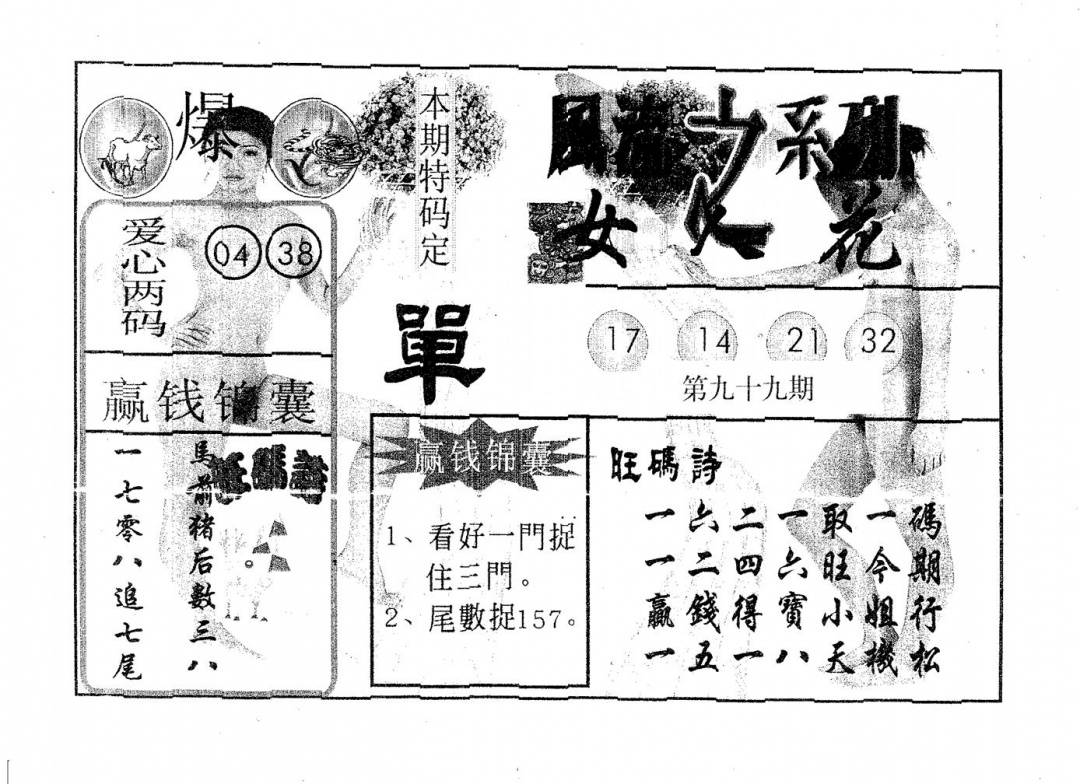 爆
本期特码定
單
风流之系列
女人花
爱心两码
04 38
赢钱锦囊
旺碼詩
馬前猪后數三八
一七零八追七尾
17 14 21 32
第九十九期
赢钱锦囊
1、看好一門捉
住三門。
2、尾數捉157。
旺碼詩
一六二一取一碼
一二四六旺今期
赢錢得寶小姐行
一五一八天機松